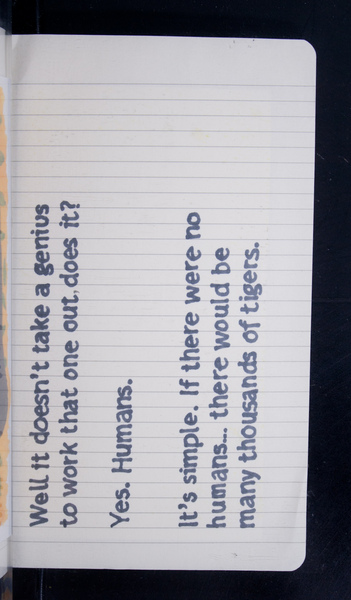 Well it doesn't take a genius
to work that one out, does it?
Yes. Humans.
It's simple. If there were no
humans... there would be
many thousands of tigers.